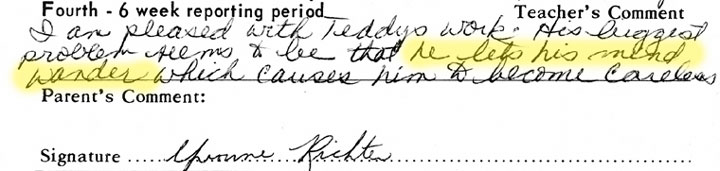 Fourth - 6 week reporting period Teacher's Comment
I am pleased with Teddys work. His biggest
problem seems to be that he lets his mind
wander which causes him to become careless
Parent's Comment:
Signature ..... Yvonne Richter .....